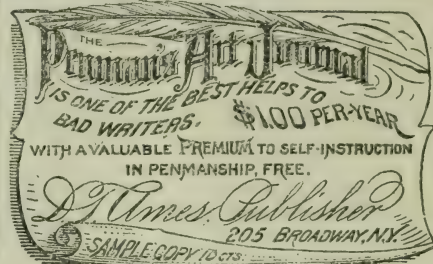 THE
Penman's Art Journal
IS ONE OF THE BEST HELPS TO
BAD WRITERS. $1.00 PER-YEAR
WITH A VALUABLE PREMIUM TO SELF-INSTRUCTION
IN PENMANSHIP, FREE.
D.T. Ames, Publisher
205 BROADWAY, N.Y.
SAMPLE COPY 10 CTS.